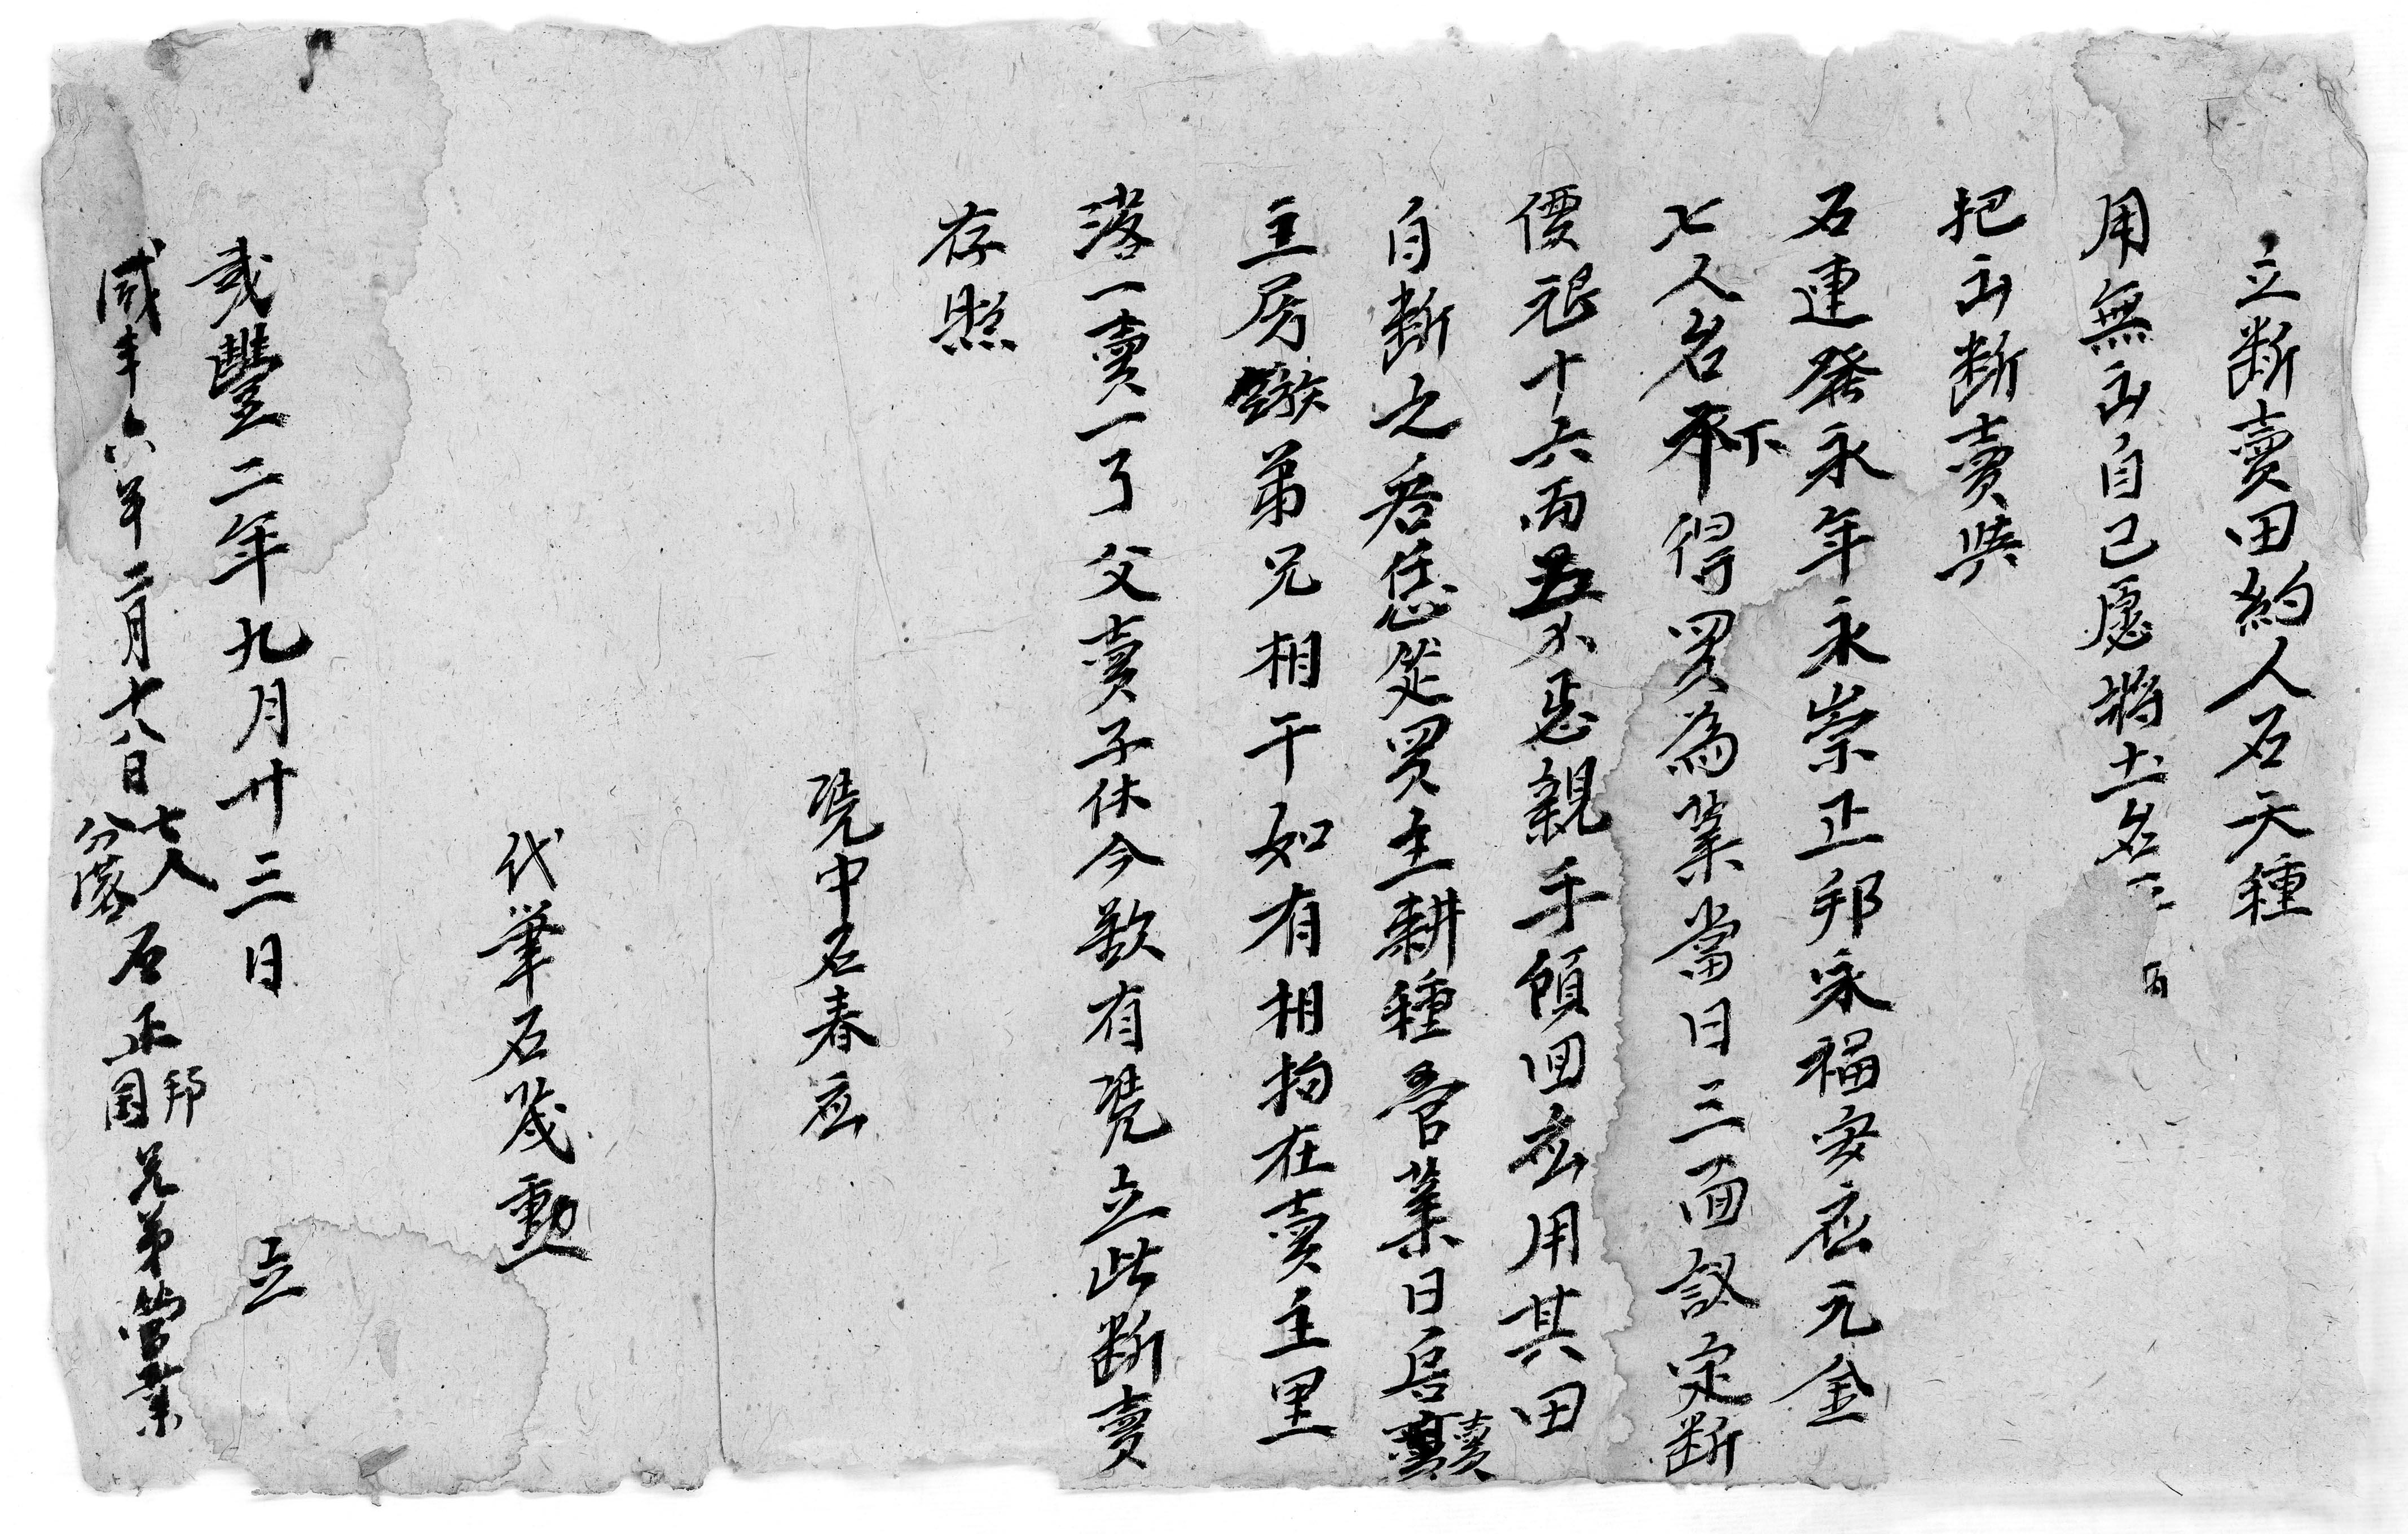 立断賣田約人石天種
用無出自己愿将土名
把出断賣與
石連發永年永崇正邦永福安應元金
七人名下得買為業當日三面議定断
價艮十六両五不悪親手領回应用其田
自断之后恁從買主耕種管業日后賣
主房族弟兄相干如有相拘在賣主里
落一賣一了父賣子休今欲有凴立此断賣
存照
凴中石春应
代筆石茂勲
咸豐二年九月廿三日 立
咸丰六年二月十八日七人分落石正邦国兄弟管業